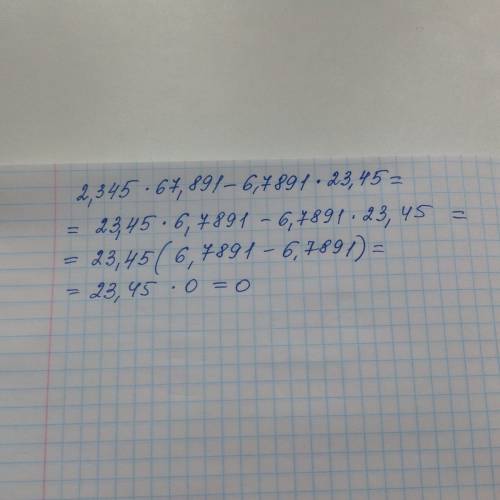 2,345 · 67,891 - 6,7891 · 23,45 =
= 23,45 · 6,7891 - 6,7891 · 23,45 =
= 23,45 ( 6,7891 - 6,7891) =
= 23,45 · 0 = 0